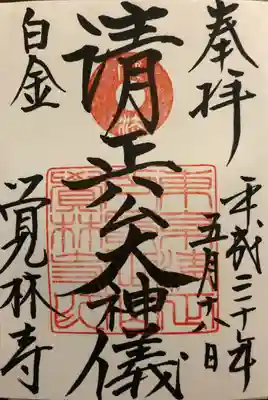 奉拝
平成三十年
五月十八日
清正公大神儀
白金
覚林寺